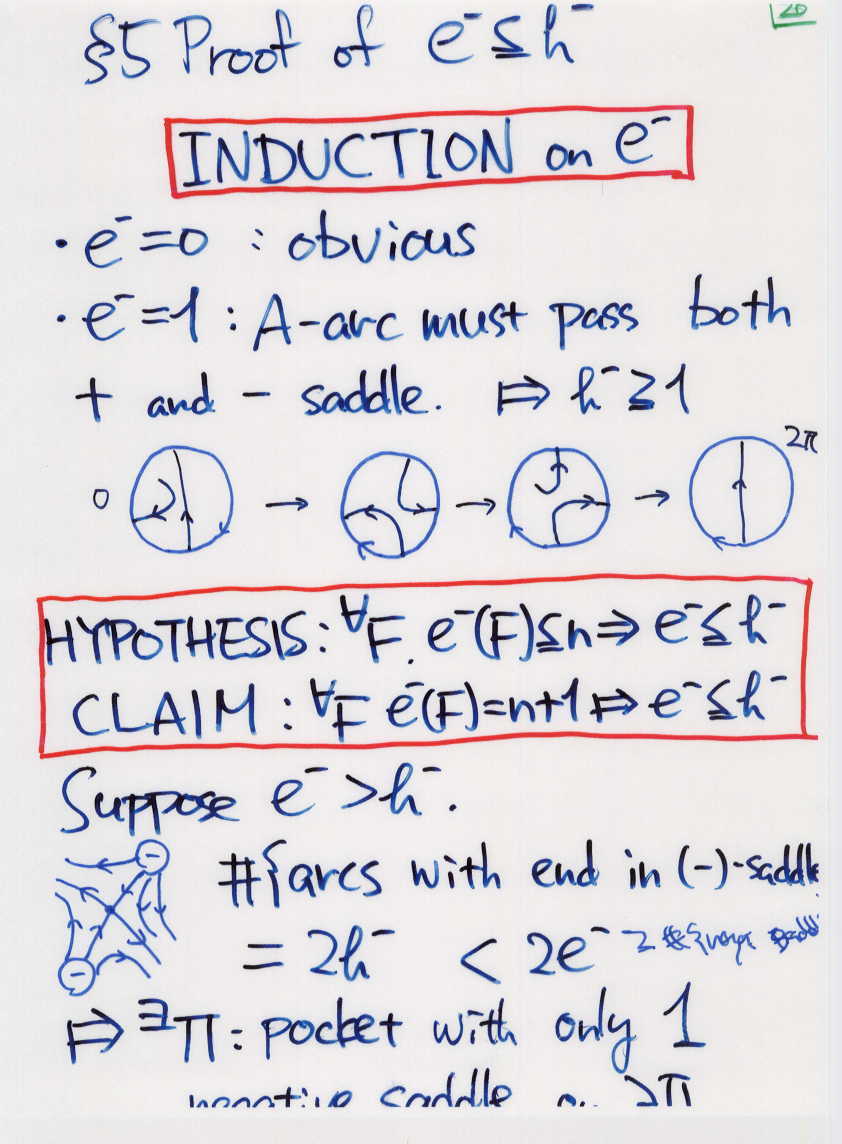 20
§5 Proof of e⁻≦h⁻
INDUCTION on e⁻
· e⁻=0 : obvious
· e⁻=1 : A-arc must pass both
+ and - saddle. ⇒ h⁻≧1
0 → → → 2π
HYPOTHESIS: ∀F. e⁻(F)≦n ⇒ e⁻≦h⁻
CLAIM : ∀F e⁻(F)=n+1 ⇒ e⁻≦h⁻
Suppose e⁻>h⁻.
#{arcs with end in (-)-saddle
= 2h⁻ < 2e⁻
⇒ ∃Π: pocket with only 1
negative saddle on ∂Π